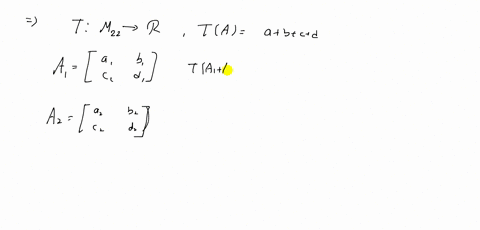 => T: M₂₂ → R , T(A) = a+b+c+d
A₁ = [ a₁ b₁ ; c₂ d₁ ] T(A₁+
A₂ = [ a₂ b₂ ; c₂ d₂ ]